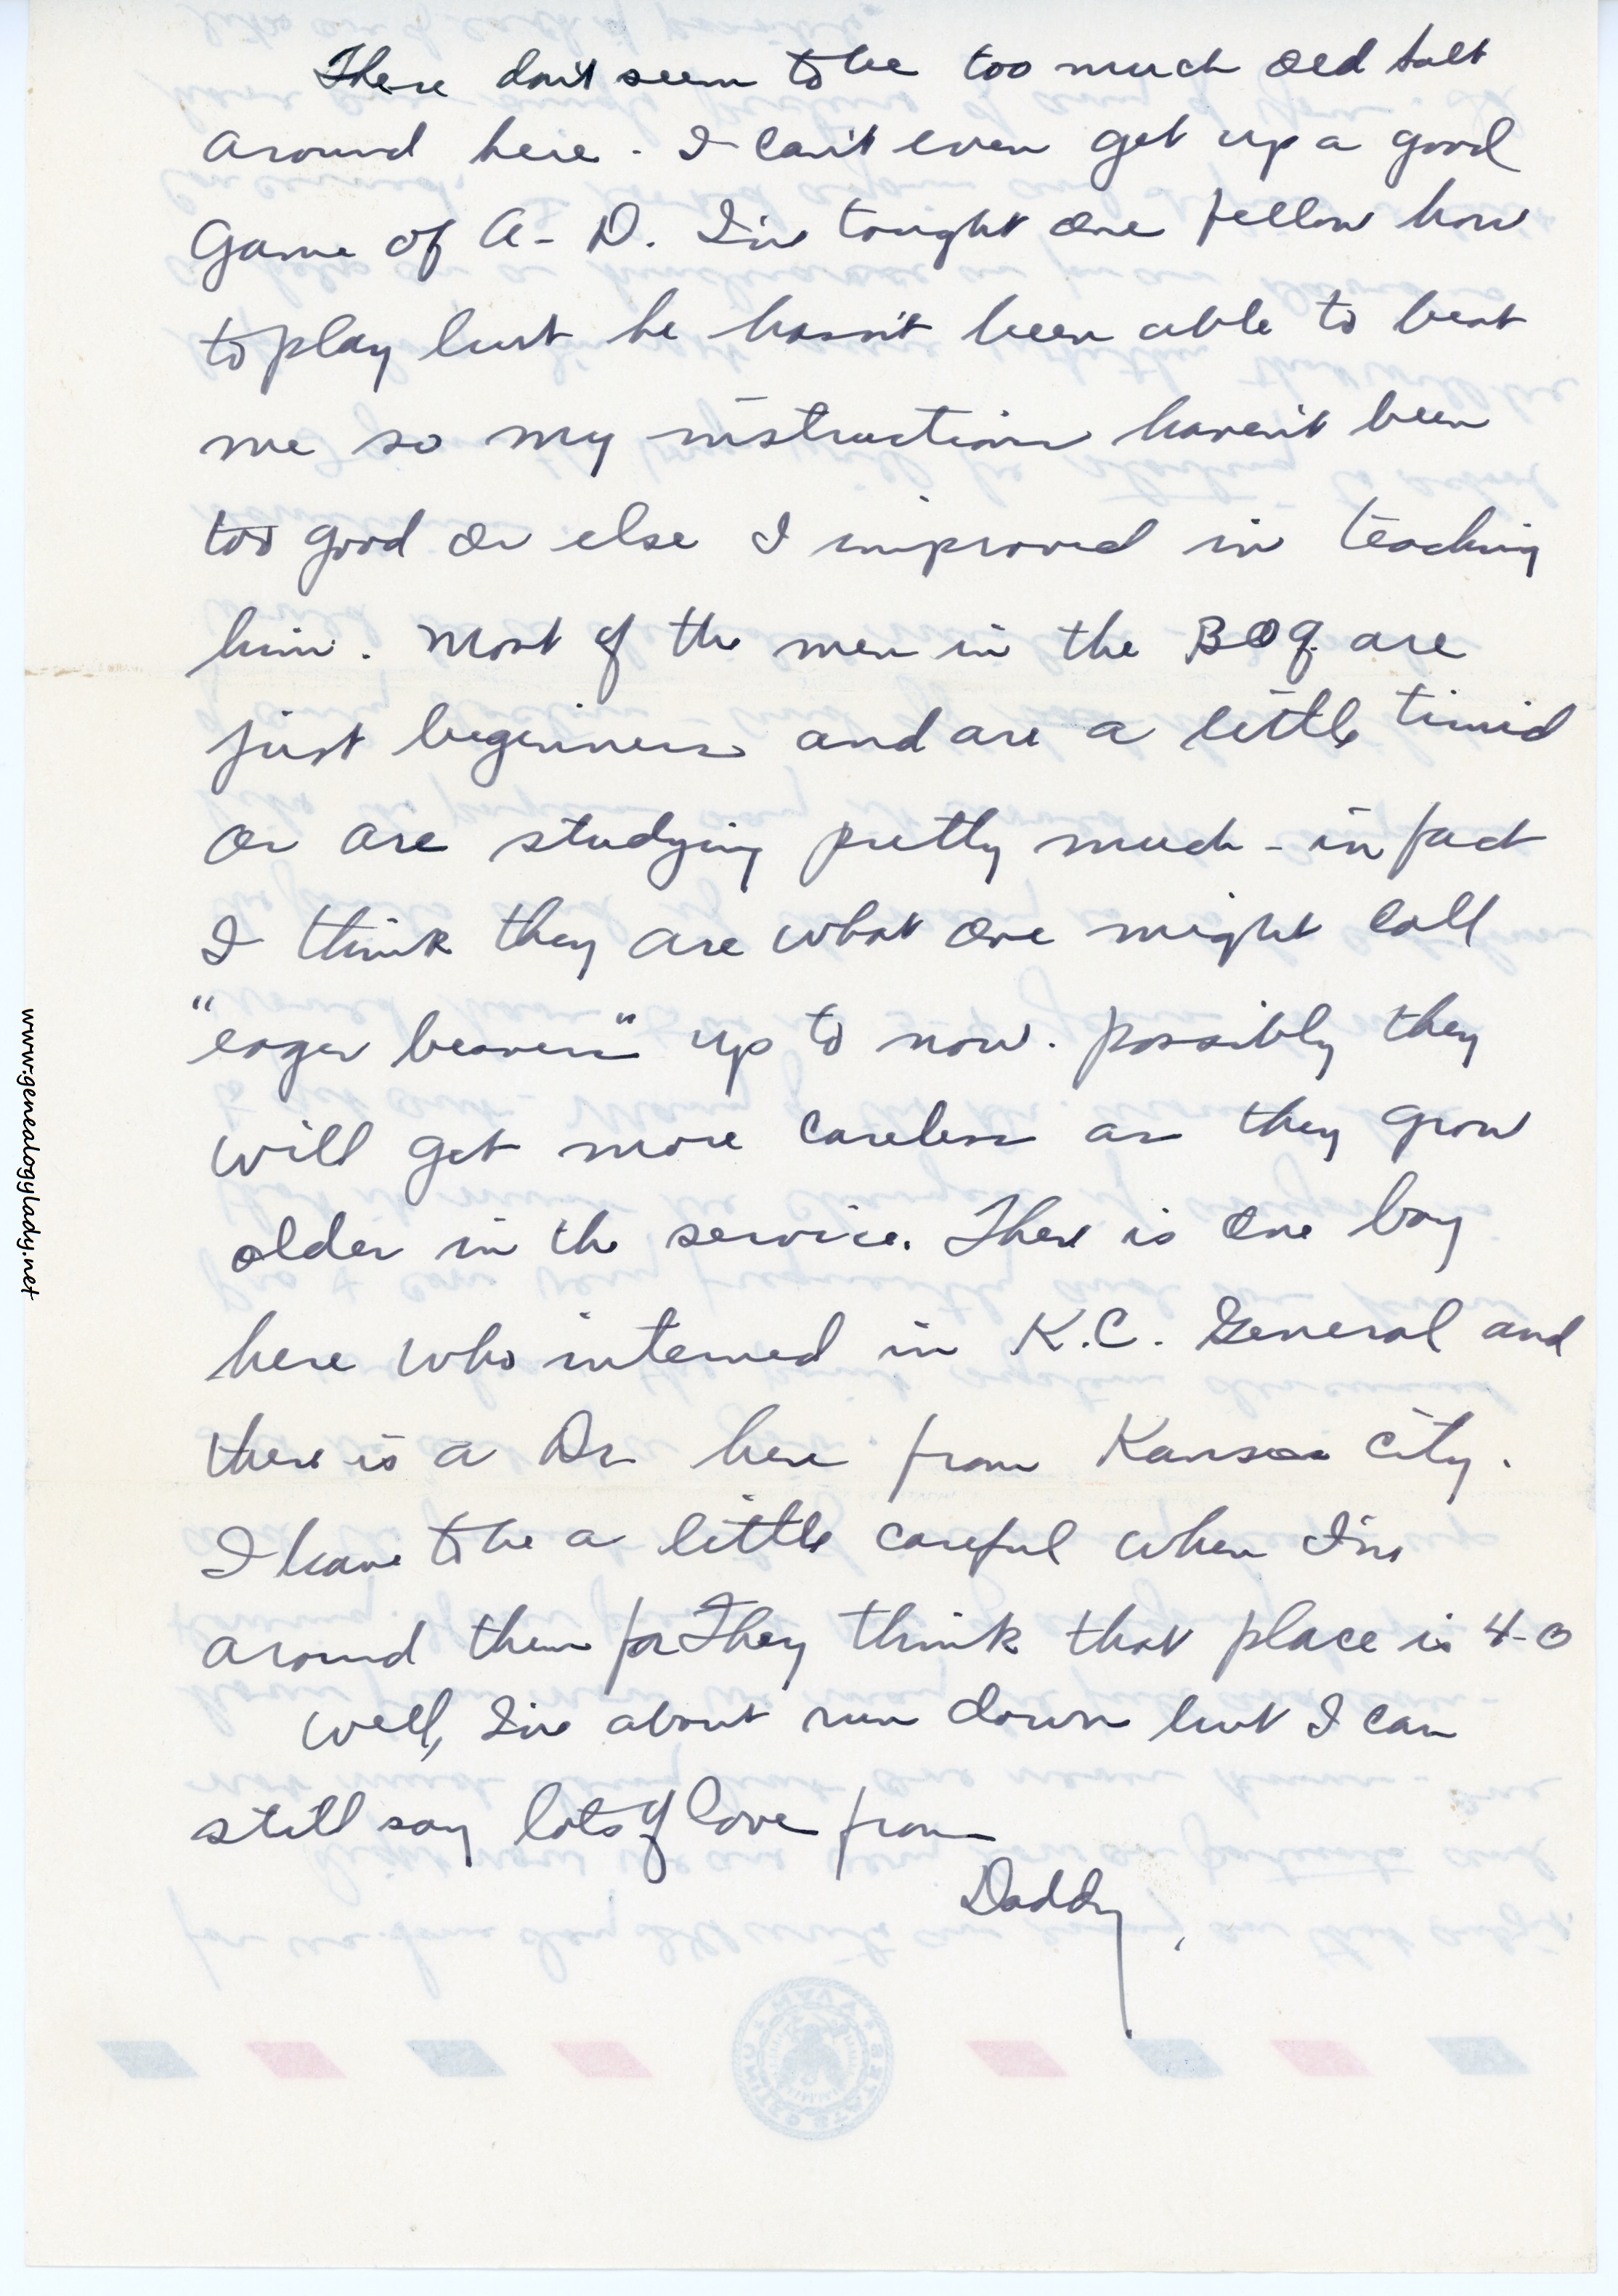 There don't seem to be too much old salt
around here. I can't even get up a good
game of A-D. I've tought one fellow how
to play but he hasn't been able to beat
me so my instructions haven't been
too good or else I improved in teaching
him. Most of the men in the BOQ. are
just beginners and are a little timid
or are studying pretty much - in fact
I think they are what one might call
"eager beavers" up to now. possibly they
will get more careless as they grow
older in the service. There is one boy
here who interned in K.C. General and
there is a Dr here from Kansas City.
I have to be a little careful when I'm
around them for They think that place is 4-0
Well, I've about run down but I can
still say lots of love from
Daddy
www.genealogylady.net